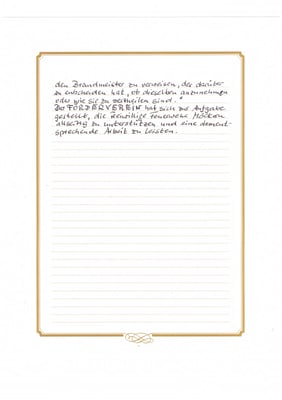 den Brandmeister zu verweisen, der darüber
zu entscheiden hat, ob dieselben anzunehmen
oder wie sie zu verteilen sind."
Der FÖRDERVEREIN hat sich die Aufgabe
gestellt, die Freiwillige Feuerwehr Möckern
allseitig zu unterstützen und eine dement-
sprechende Arbeit zu leisten.